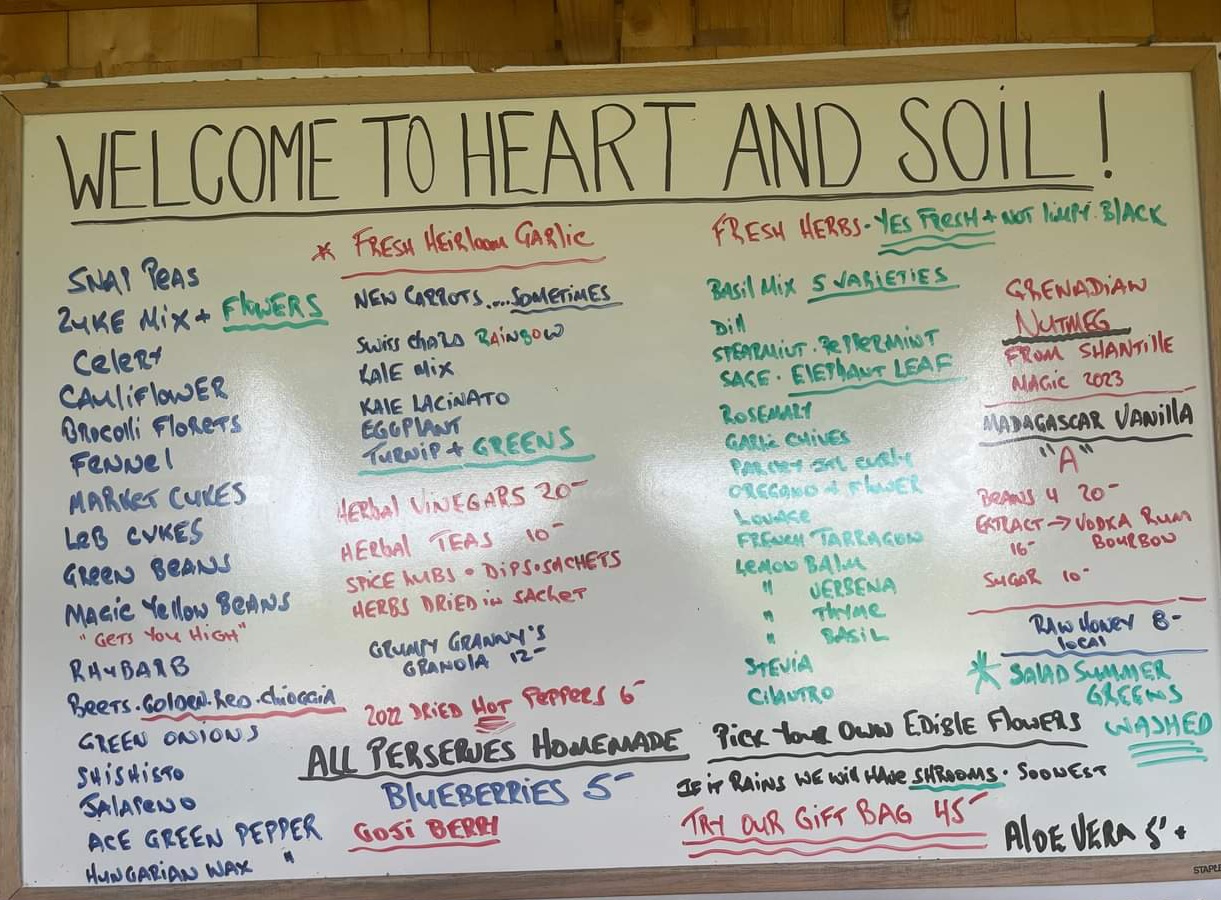 WELCOME TO HEART AND SOIL!
SNAP PEAS
ZUKE MIX + FLOWERS
CELERY
CAULIFLOWER
BROCOLLI FLORETS
FENNEL
MARKET CUKES
LEB CUKES
GREEN BEANS
MAGIC YELLOW BEANS
"GETS YOU HIGH"
RHUBARB
BEETS. GOLDEN. RED. CHIOGGIA
GREEN ONIONS
SHISHISTO
JALAPENO
ACE GREEN PEPPER
HUNGARIAN WAX "
* FRESH HEIRLOOM GARLIC
NEW CARROTS....SOMETIMES
SWISS CHARD RAINBOW
KALE MIX
KALE LACINATO
EGGPLANT
TURNIP + GREENS
HERBAL VINEGARS 20-
HERBAL TEAS 10-
SPICE RUBS • DIPS • SACHETS
HERBS DRIED IN SACHET
GRUMPY GRANNY'S
GRANOLA 12-
2022 DRIED HOT PEPPERS 6-
ALL PERSERVES HOMEMADE
BLUEBERRIES 5-
GOJI BERRY
FRESH HERBS. YES FRESH + NOT LIMPY. BLACK
BASIL MIX 5 VARIETIES
DILL
SPEARMINT. PEPPERMINT
SAGE. ELEPHANT LEAF
ROSEMARY
GARLIC CHIVES
PARSLEY CURLY
OREGANO + FLOWER
LOVAGE
FRENCH TARRAGON
LEMON BALM
" VERBENA
" THYME
" BASIL
STEVIA
CILANTRO
GRENADIAN
NUTMEG
FROM SHANTILLE
MAGIC 2023
MADAGASCAR VANILLA
"A"
BEANS 4 20-
EXTRACT → VODKA RUM
16- BOURBON
SUGAR 10-
RAW HONEY 8-
LOCAL
* SALAD SUMMER
GREENS
WASHED
PICK YOUR OWN EDIBLE FLOWERS
IF IT RAINS WE WILL HAVE SHROOMS. SOONEST
TRY OUR GIFT BAG 45-
ALOE VERA 5' +
STAPLE